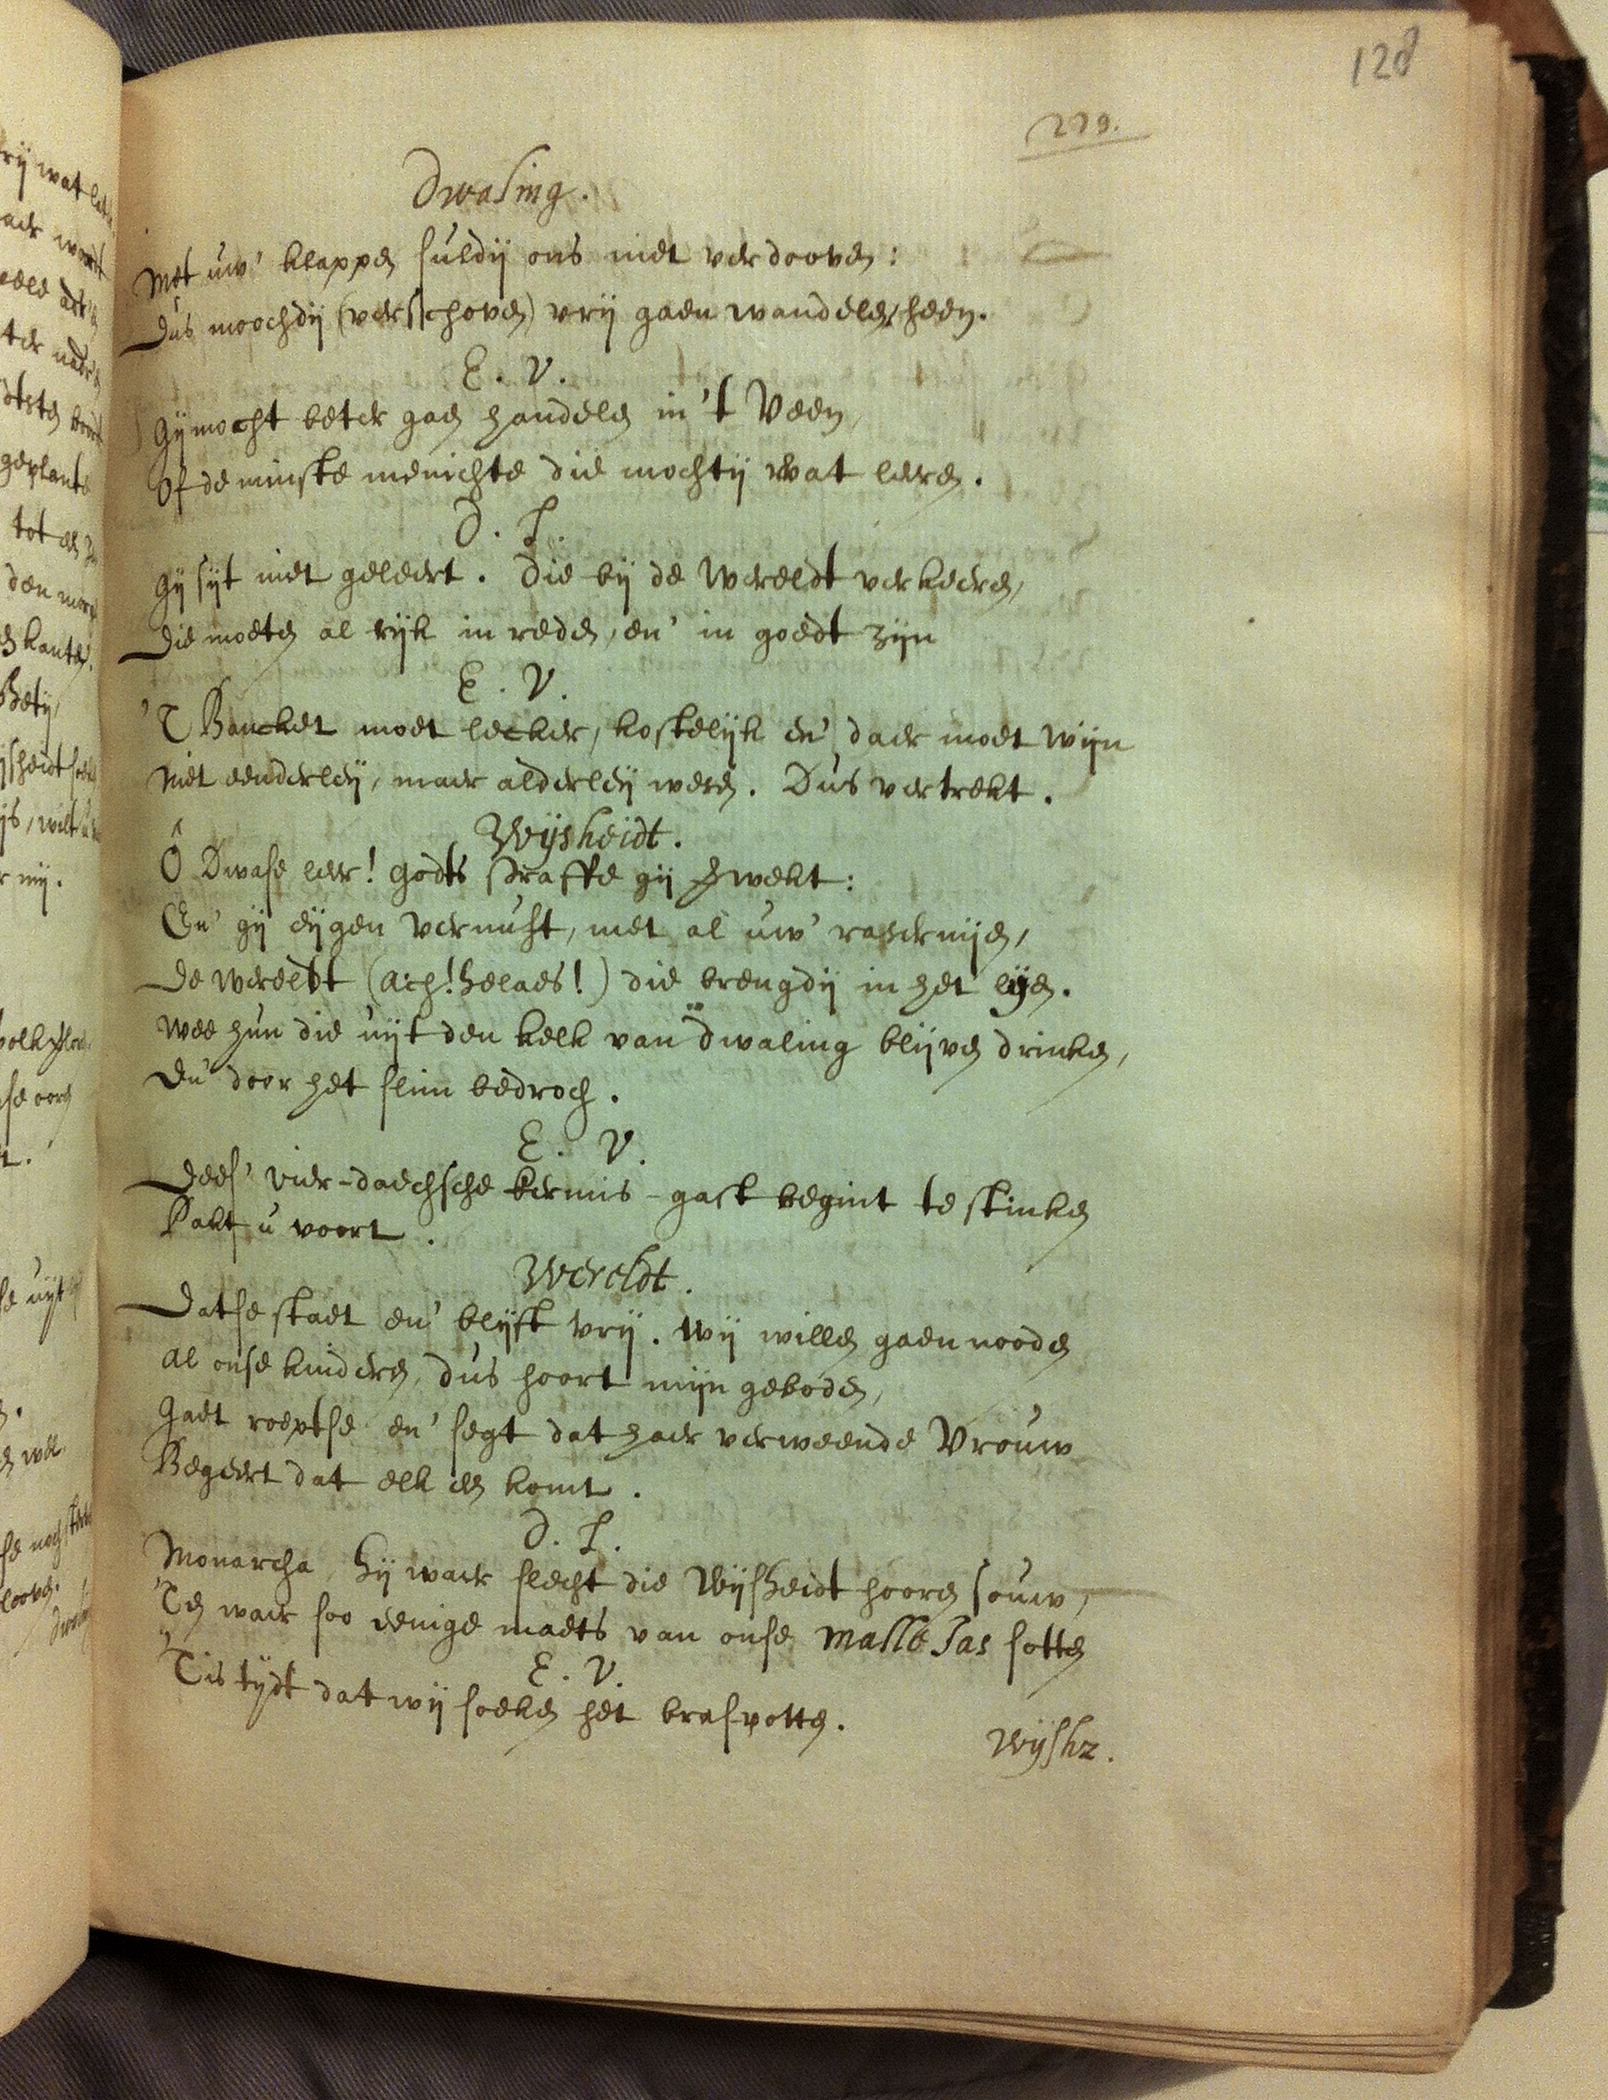 128
279.
Dwaling.
Met uw' klappen suldij ons niet verdooven:
Dus moochdij (verschoven) vrij gaen wandelen heen.
E. V.
Gij mocht beter gaen handelen in 't Veen,
Of de minste menichte die mochtij wat leeren.
D. L.
Gij sijt niet geleert. Die bij de Wereldt verkeeren,
Die moeten al rijk in reden, en' in goedt zijn
E. V.
'T Bancket moet lecker, kostelijk en' daer moet wijn
Niet eenderleij, maer alderleij wesen. Dus vertrekt.
Wijsheidt.
Ô Dwase leer! Godts straffe gij herwekt:
En' gij eijgen vernuft, met al uw' rasernijen,
De Wereldt (ach! helaes!) die brengdij in het lijen.
Wee hun die uijt den kelk van Dwaling blijven drinken,
En' door het slim bedroch.
E. V.
Dees' vier-daechsche kermis-gast begint te stinken
Pakt u voort.
Wereldt.
Datse staet en' blijft vrij. Wij willen gaen nooden
Al onse kinderen, dus hoort mijn geboden,
Gaet roeptse en' segt dat haer verweende Vrouw
Begeert dat elk een komt.
D. L.
Monarcha, hij waer slecht die Wijsheidt hooren souw,
'Ten waer soo eenige maets van onse malle Jas sotten
E. V.
'Tis tijdt dat wij soeken het brasspotten.
Wijshz.